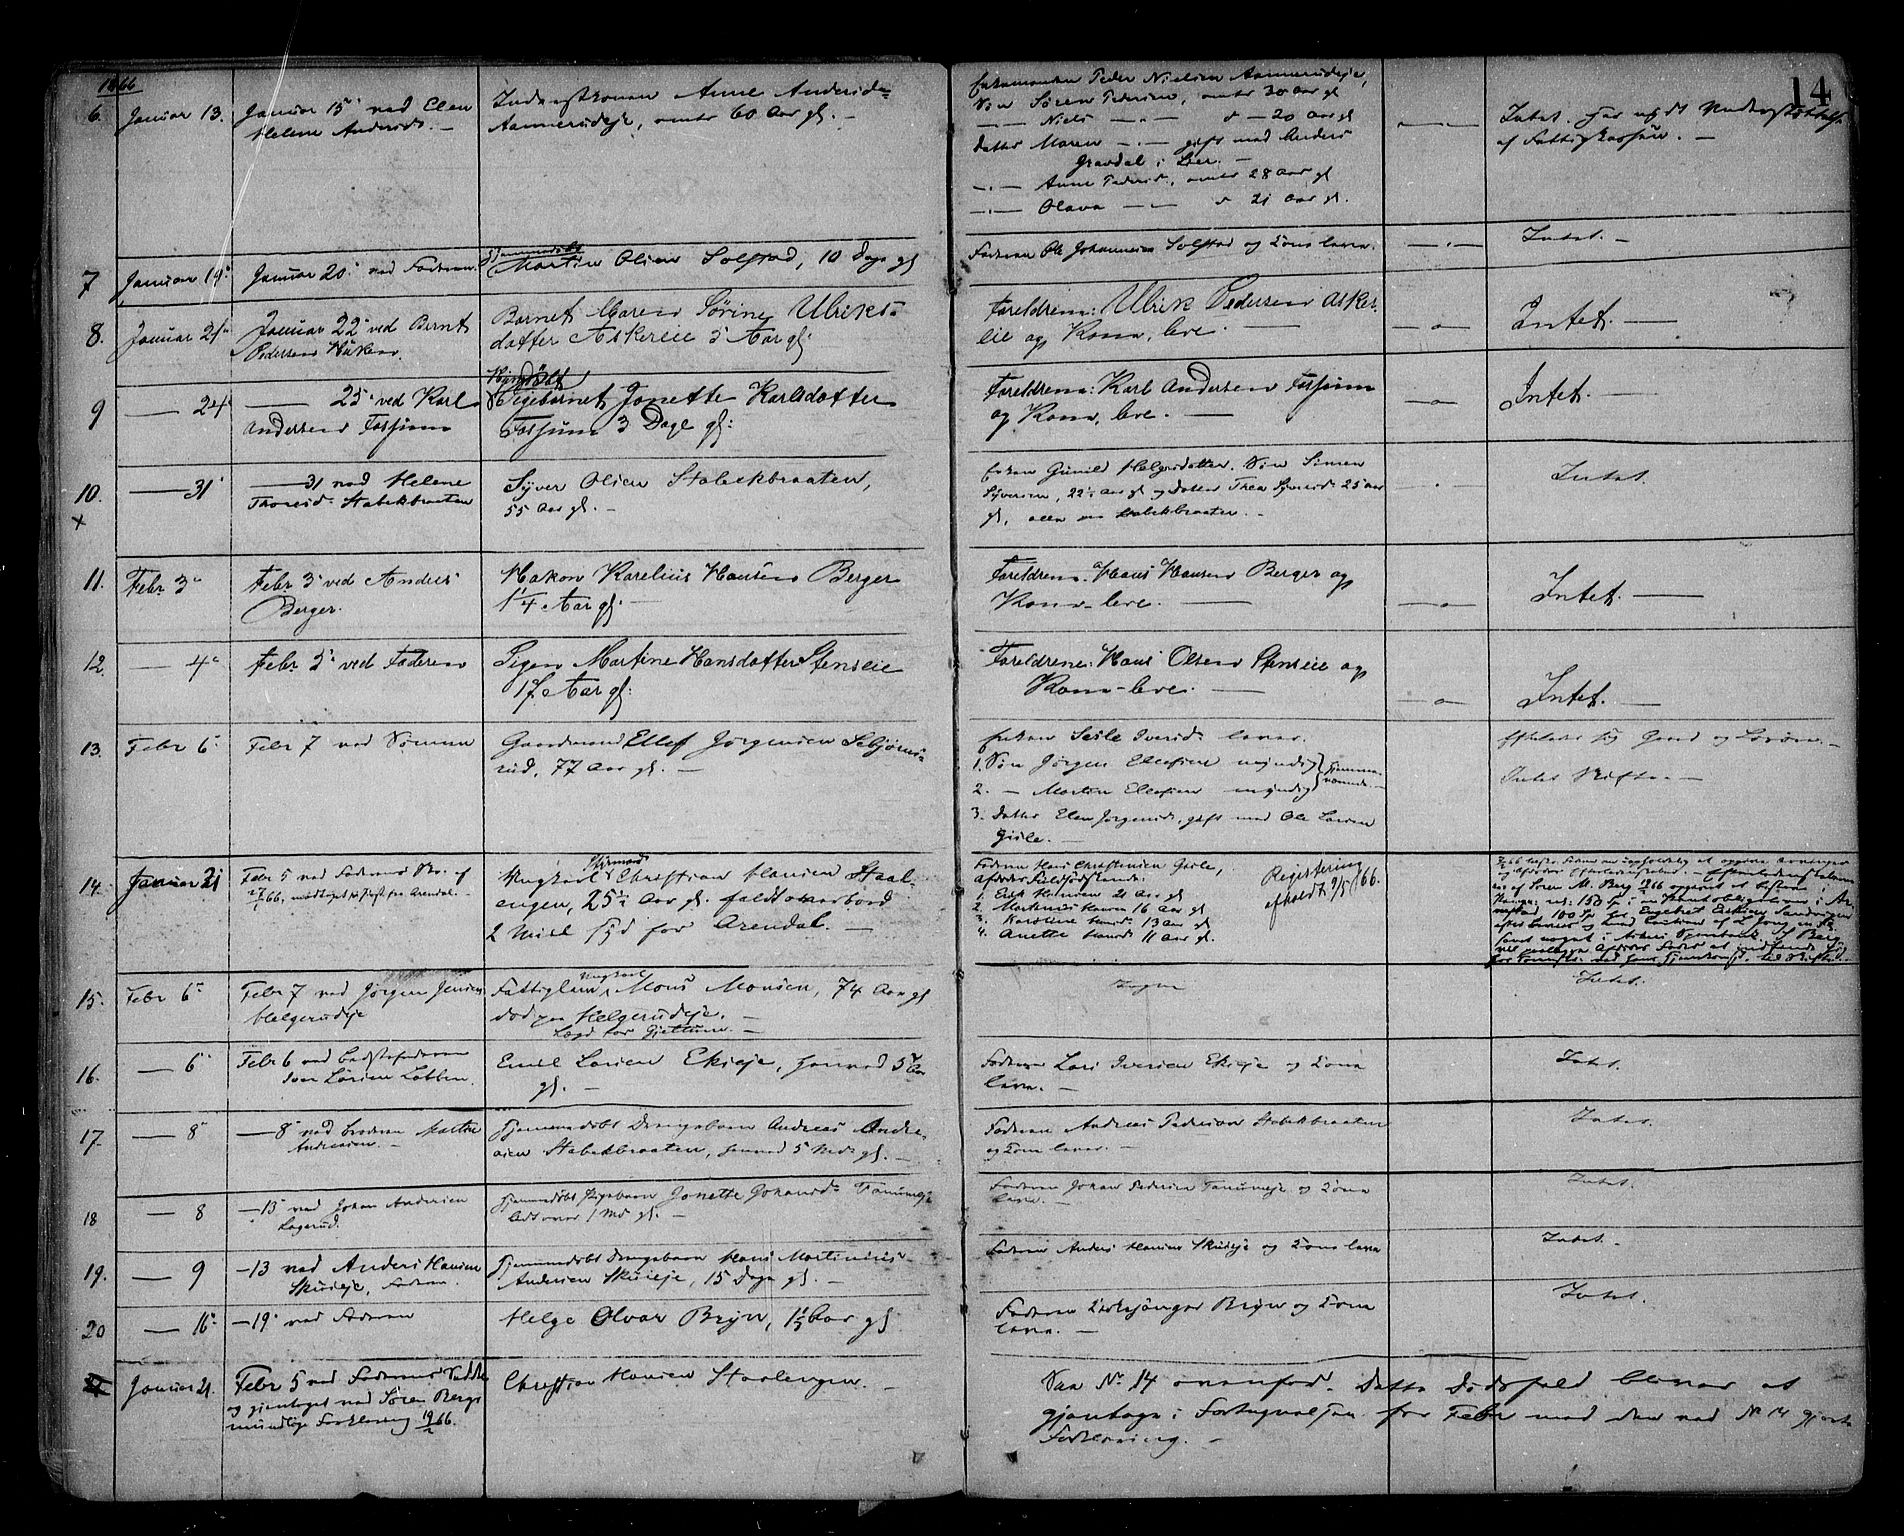 1866
14
6. Januar 13. Januar 15 ved Elen
Helene Andersd. —
Inderstkonen Anne Andersd=
Aamerudeje, omtr 60 Aar gl. —
Enkemanden Peder Nielsen Aamerudeje,
Søn Søren Pedersen, omtr 30 Aar gl
— Niels — — d — 20 Aar gl
Datter Maren — . — gift med Anders
Gravdal i Lier. —
— . — Anne Pedersd., omtr 28 Aar gl
— . — Olava — — d 21 Aar gl.
Intet. Har nydt Understøttelse
af Fattigkassen. —
7 Januar 19 Januar 20 ved Faderen
Hjemmedøbt
Martin Olsen Solstad, 10 Dage gl
Faderen Ole Johannesen Solstad og Kone lever.
Intet. —
8. Januar 21 Januar 22 ved Bernt
Pedersen
Barnet Maren Sørine Ulriks-
datter Askereie 5 Aar gl:
Foreldrene: Ulrik Pedersen Asker-
eie og Kone, leve. —
— o — Intet. —
9 — 24 — 25 ved Karl
Andersen Fossum
Hjemdøbt
Pigebarnet Jonette Karlsdatter
Fossum 3 Dage gl:
Foreldrene: Karl Andersen Fossum
og Kone, leve. —
— o — Intet. —
10. — 31 — 31 ved Helene
Thoresd. Stabekbraaten
x
Syver Olsen Stabekbraaten,
55 Aar gl. —
Enken Gunild Helgesdatter. Søn Simen
Syversen, 22 Aar gl og Datter Thea Syversd. 25 Aar
gl, alle paa Stabekbraaten. —
Intet.
11. Febr 3 Febr. 3 ved Anders
Berger.
Hakon Karelius Hansen Berger
1/4 Aar gl. —
Foreldrene: Hans Hansen Berger og
Kone leve. —
— o — Intet. —
12. — 4 Febr 5 ved Faderen
Sigen Martine Hansdatter Stenseie
17 Aar gl:
Foreldrene: Hans Olsen Stenseie og
Kone leve. —
— o — Intet. —
13. Febr 6 Febr 7 ved Sønnen
Gaardmand Ellef Jørgensen Sebjørns-
rud, 77 Aar gl. —
Enken Sidle Iversd. lever.
1. Søn Jørgen Ellefsen myndig
2. — Martin Ellefsen myndig
Hjemme-
værende. —
3. Datter Elen Jørgensd., gift med Ole Larsen
Gisle. —
Efterlader sig Gaard og Løsøre. —
Intet Skifte. —
14. Januar 21 Febr 5 ved Faderens Br. af
Ungkarl Styrmand Christian Hansen Staal-
engen, 25½ Aar gl. faldt overbord
2 Miil Syd for Arendal. —
Faderen Hans Christensen Gisle,
Afdødes Fuldsødskende:
1. Erik Hansen 21 Aar gl
2. Martinus Hansen 16 Aar gl
3. Karoline Hansd. 13 Aar gl
4. Anette Hansd. 11 Aar gl.
Registrering
afholdt 9/5 66.
15. Febr 6 Febr 7 ved Jørgen Jensen
Helgerudeje
Fattiglem, Ungkarl Mons Monsen, 74 Aar gl
død paa Helgerudeje. —
Lægd for Gjettum. —
Ingen
Intet.
16. — 6 Febr 6 ved Bedstefaderen
Iver Larsen Løkken
Emil Larsen Ekeeje, henved 5 Aar
gl. —
Faderen Lars Iversen Ekeeje og Kone
lever. —
Intet.
17. — 8 — 8 ved Broderen Martin
Andreasen. —
Hjemmedøbt Drengebarn Andreas Andre-
asen Stabekbraaten, henved 5 Mdr gl. —
Faderen Andreas Pedersen Stabekbraaten
og Kone lever. —
Intet.
18 — 8 — 13 ved Johan Andersen
Hagerud.
Hjemmedøbt Pigebarn Jonette Johansd. Tanumeje
lidt over 1 Md gl. —
Faderen Johan Pedersen Tanumeje og Kone
lever. —
Intet.
19. — 9 — 13 ved Anders Hansen
Skuieje, Faderen.
Hjemmedøbt Drengebarn Hans Martinius
Andersen Skuieje, 15 Dage gl. —
Faderen Anders Hansen Skuieje og Kone lever
Intet. —
20 — 16 — 19 ved Faderen
Helge Olvar Bryn, 1½ Aar gl
Faderen Kirkesanger Bryn og Kone
lever. —
Intet.
Januar 21. Febr 5 ved Faderens Seddel
og gjentaget ved Søren Bergs
mundtlige Forklaring 19/2 66.
Christian Hansen Staalengen. —
Saa No 14 ovenfor. Dette Dødsfald bliver at
gjentage i Fortegnelsen for Febr med den ved No 14 gjorte
Forklaring. —